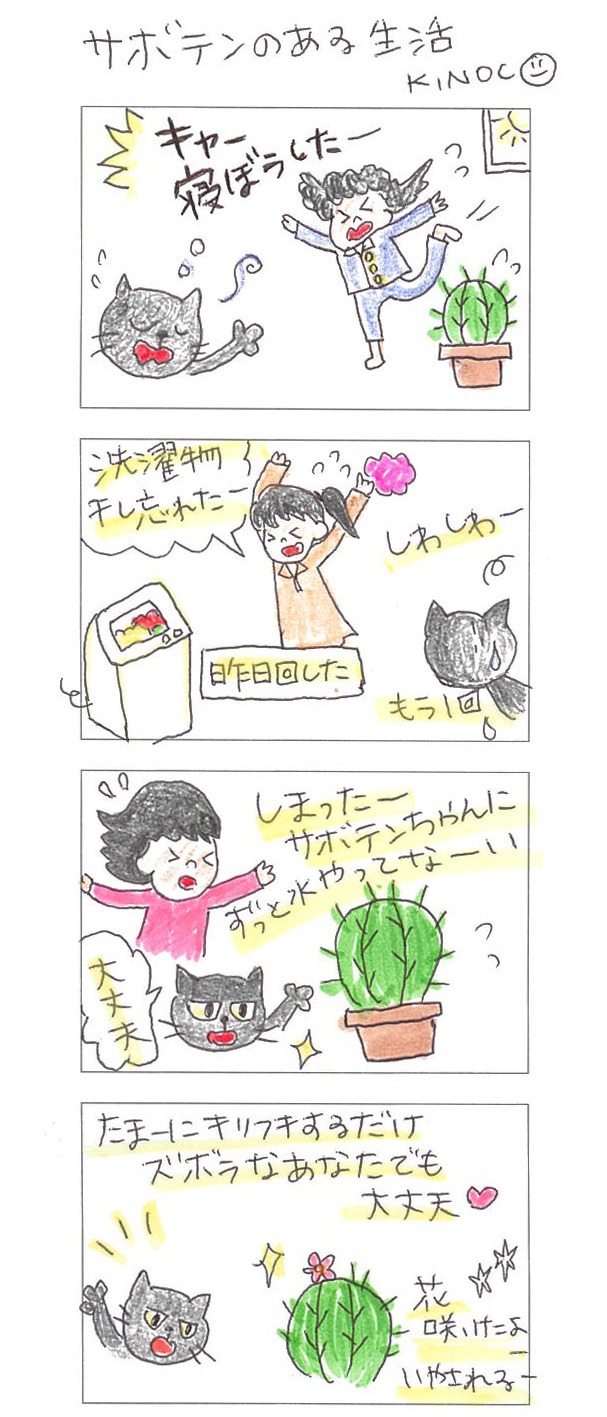 サボテンのある生活
KINOC
キャー
寝ぼうしたー
洗濯物
干し忘れたー
しわしわー
昨日回した
もう1回
しまったー
サボテンちゃんに
ずっと水やってなーい
大丈夫
たまーにキリフキするだけ
ズボラなあなたでも
大丈夫
花
咲いたよー
いやされるー